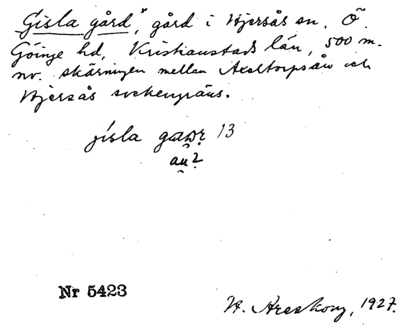 Gisla gård, gård i Hjersås sn. Ö.
Göinge hd, Kristianstads län, 500 m.
nv. skärningen mellan Axeltorpsån och
Hjersås sockengräns.
gísla 13
Nr 5423
V. Areskoug, 1927.